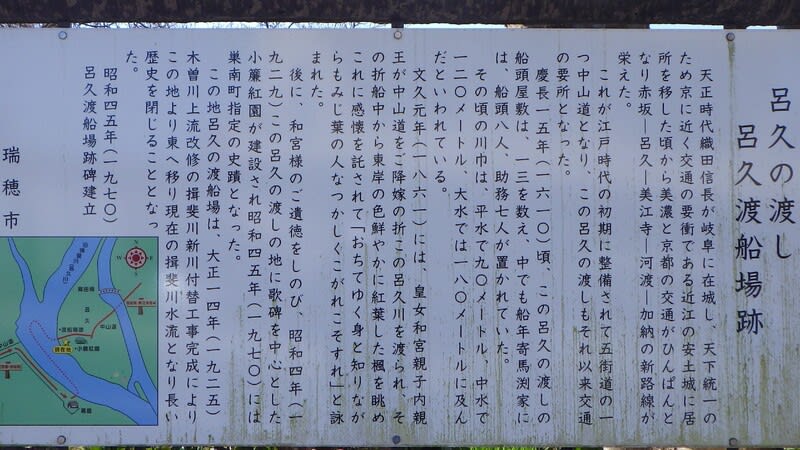 呂久の渡し
呂久渡船場跡
天正時代織田信長が岐阜に在城し　天下統一の
ため京に近く交通の要衝である近江の安土城に居
所を移した頃から美濃と京都の交通がひんぱんと
なり赤坂―呂久―美江寺―河渡―加納の新路線が
栄えた。
これが江戸時代の初期に整備されて五街道の一
つ中山道となり、この呂久の渡しもそれ以来交通
の要所となった。
慶長一五年（一六一〇）頃、この呂久の渡しの
船頭屋敷は、一三を数え、中でも船年寄馬渕家に
は、船頭八人、助務七人が置かれていた。
その頃の川巾は、平水で九〇メートル、中水で
一二〇メートル、大水では一八〇メートルに及ん
だといわれている。
文久元年（一八六一）には、皇女和宮親子内親
王が中山道をご降嫁の折この呂久川を渡られ、そ
の折船中から東岸の色鮮やかに紅葉した楓を眺め
これに感懐を託されて「おちてゆく身と知りなが
らもみじ葉の人なつかしくこがれこそすれ」と詠
まれた。
後に、和宮様のご遺徳をしのび、昭和四年（一
九二九）この呂久の渡しの地に歌碑を中心とした
小簾紅園が建設され昭和四五年（一九七〇）には
巣南町指定の史蹟となった。
この地呂久の渡船場は、大正一四年（一九二五）
木曽川上流改修の揖斐川新川付替工事完成により
この地より東へ移り現在の揖斐川水流となり長い
歴史を閉じることとなっ
た。
昭和四五年（一九七〇）
呂久渡船場跡碑建立
瑞穂市
N
W
E
S
呂久
渡船場跡
中山道
現在地
小簾紅園
中山道